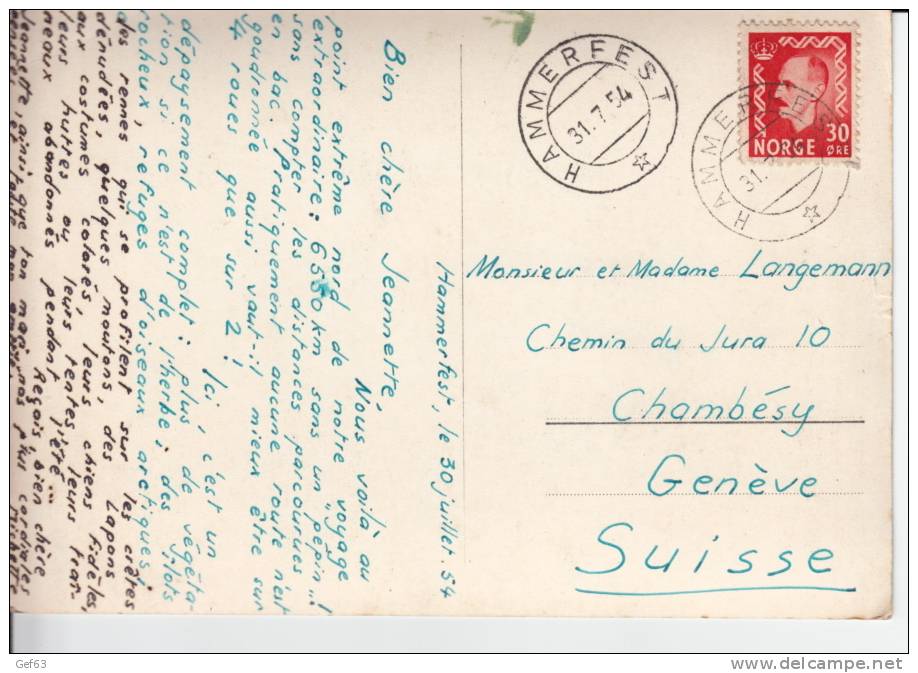 Hammerfest, le 30 juillet. 54
Bien chère Jeannette,
Nous voilà au
point extrême nord de notre voyage
extraordinaire: 6550 km sans un "pépin"!
sans compter les distances parcourues
en bac. Pratiquement aucune route n'est
goudronée aussi vaut-il mieux être sur
4 roues que sur 2!
Ici, c'est un
dépaysement complet: plus de végéta-
tion si ce n'est de l'herbe; des îlots
rocheux, refuges d'oiseaux arctiques;
des rennes qui se profilent sur les crêtes
dénudées, quelques moutons, des Lapons
aux costumes colorés, leurs chiens fidèles,
leurs huttes ou leurs tentes; leurs traî-
neaux abandonnés pendant l'été...
Reçois, bien chère
Jeannette, ainsi que ton mari, nos plus cordiales
HAMMERFEST
31.7.54
NORGE
30
ØRE
HAMMERFES
31.
Monsieur et Madame Langemann
Chemin du Jura 10
Chambésy
Genève
Suisse
Gef63
delcampe.net